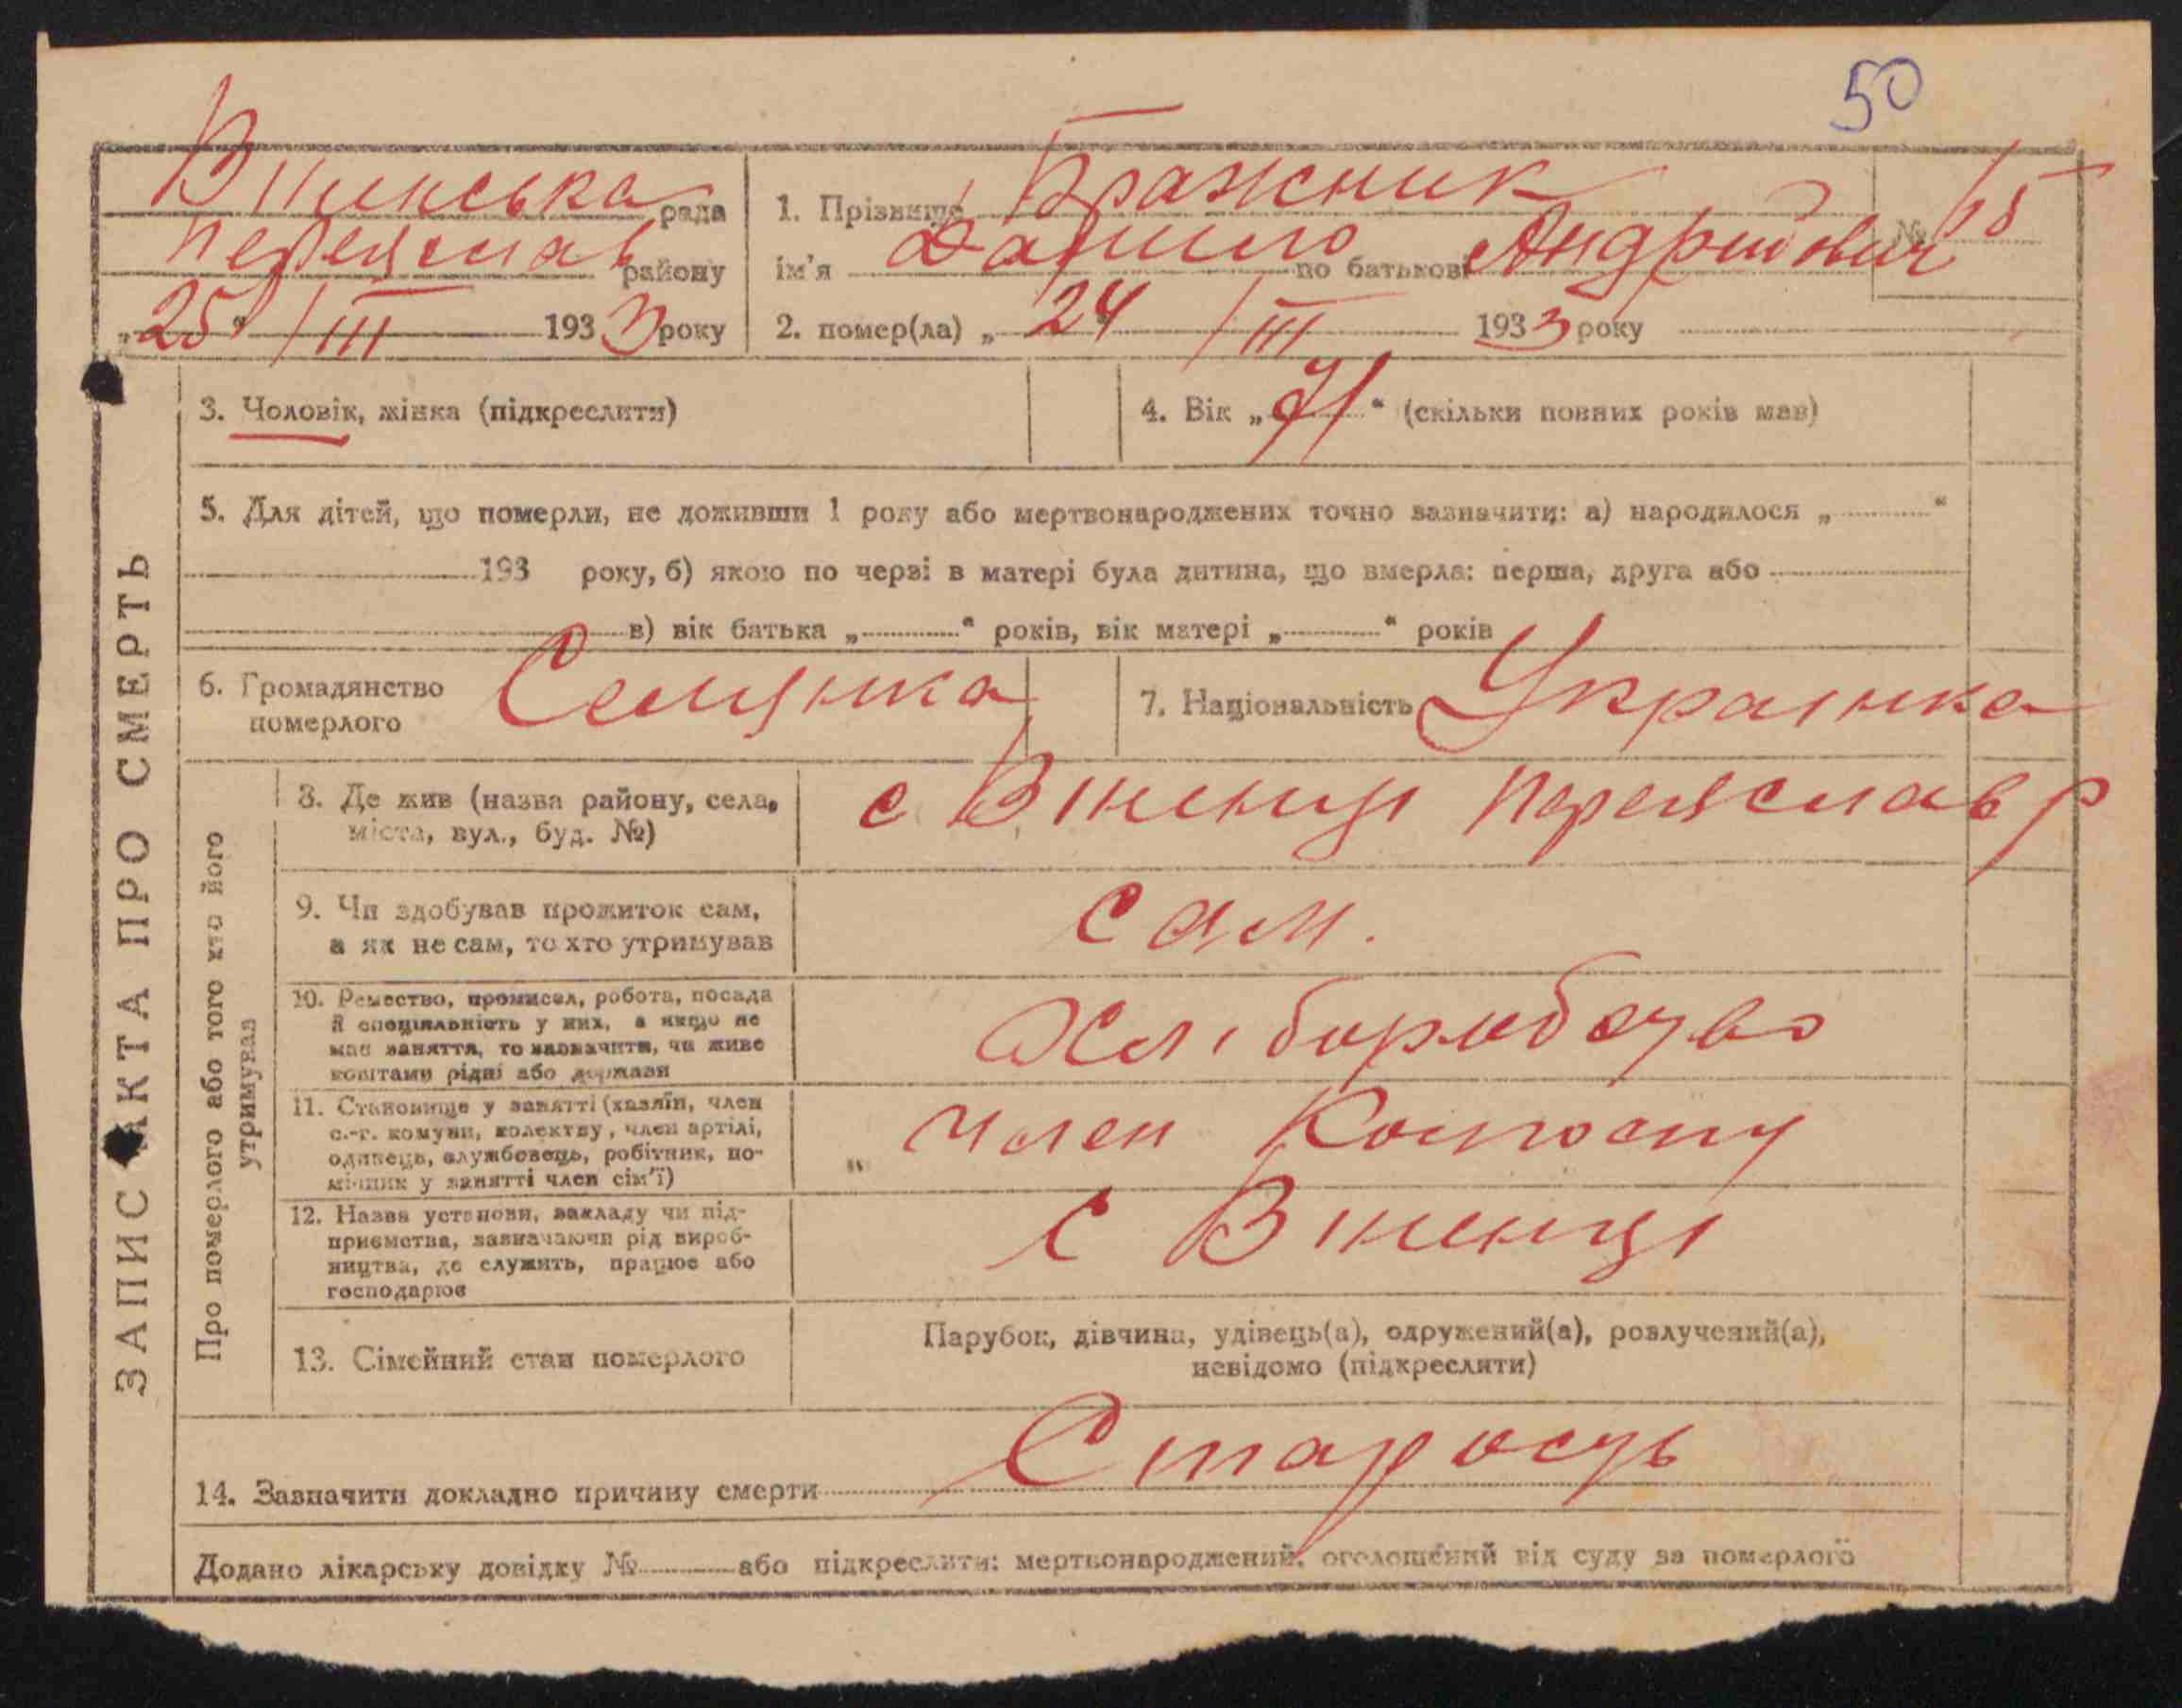 50
Вненська рада
Переяслав району
„25“ / III 1933 року
1. Прізвище Бражник
ім'я Данило по батькові Андрійович
№ 15
2. помер(ла) „24 / III 1933 року
3. Чоловік, жінка (підкреслити)
4. Вік „71“ (скільки повних років мав)
5. Для дітей, що померли, не доживши 1 року або мертвонароджених точно зазначити: а) народилося „ “
193 року, б) якою по черзі в матері була дитина, що вмерла: перша, друга або
в) вік батька „ “ років, вік матері „ “ років
6. Громадянство
померлого
Селянка
7. Національність Українка
ЗАПИС АКТА ПРО СМЕРТЬ
Про померлого або того хто його
утримував
8. Де жив (назва району, села,
міста, вул., буд. №)
с Вненці Переяслав р
9. Чи здобував прожиток сам,
а як не сам, то хто утримував
сам.
10. Ремество, промисел, робота, посада
й спеціяльність у них, а якщо не
мав заняття, то зазначити, чи живе
коштами рідні або держави
Хліборобство
11. Становище у занятті (хазяїн, член
с.-г. комуни, колективу, член артілі,
одинець, службовець, робітник, по-
мічник у занятті член сім'ї)
член Колгоспу
12. Назва установи, закладу чи під-
приємства, зазначаючи рід вироб-
ництва, де служить, працює або
господарює
с Вненці
13. Сімейний стан померлого
Парубок, дівчина, удівець(а), одружений(а), розлучений(а),
невідомо (підкреслити)
14. Зазначити докладно причину смерти Старость
Додано лікарську довідку № або підкреслити: мертвонароджений, оголошений від суду за померлого